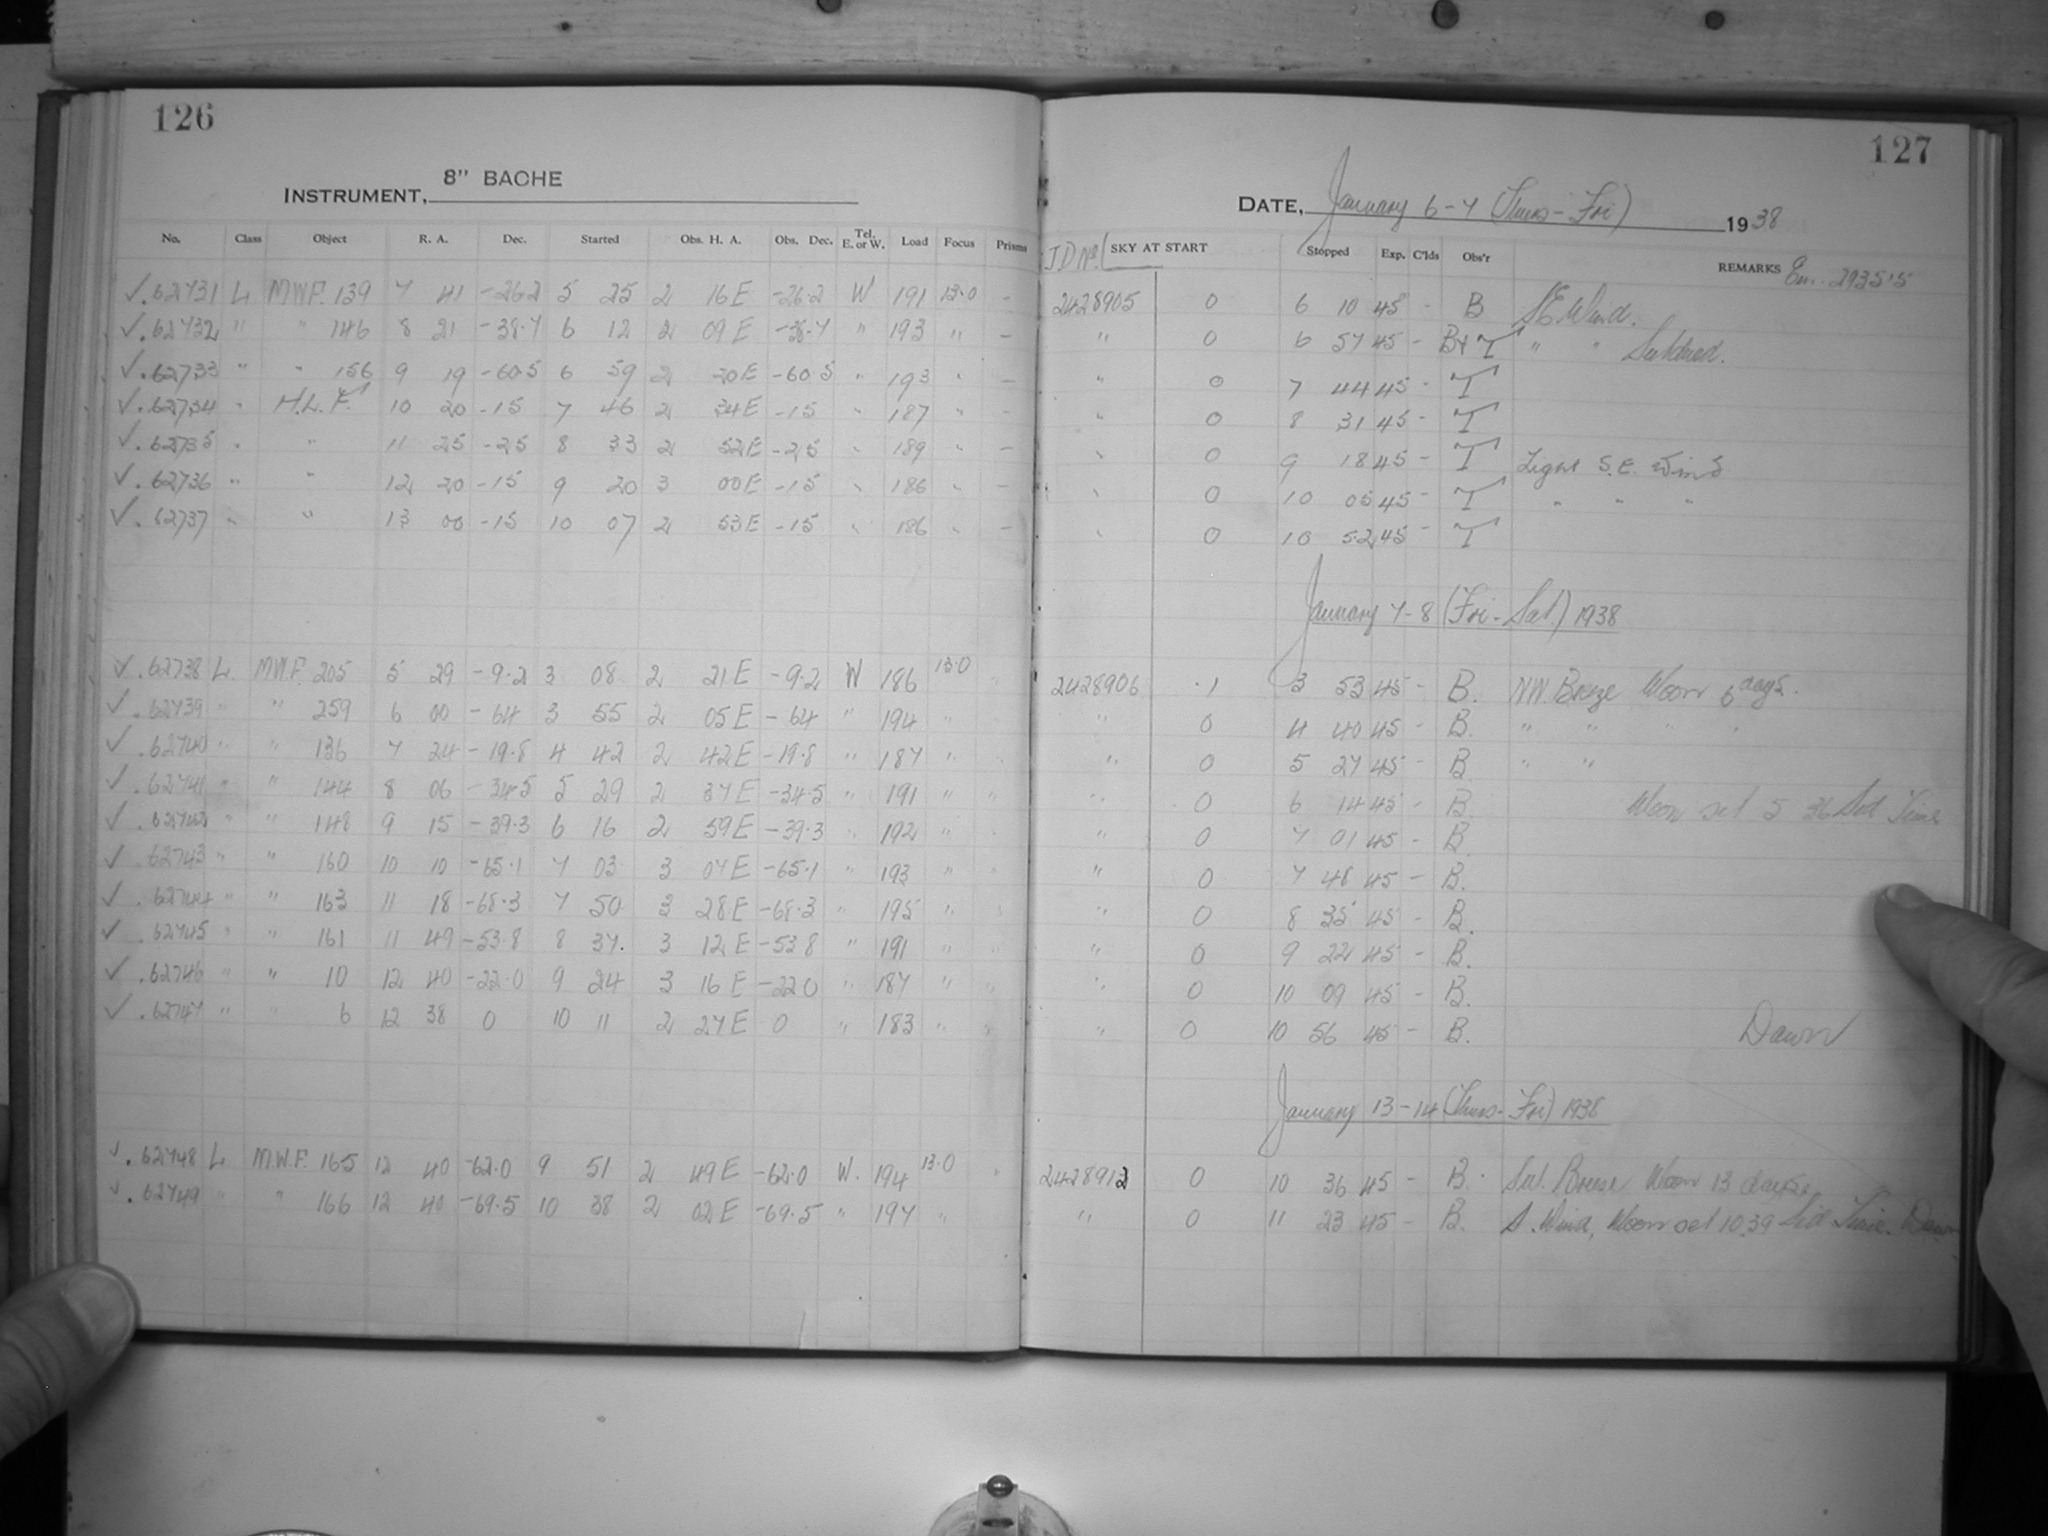 126
INSTRUMENT, 8" BACHE
No. Class Object R. A. Dec. Started Obs. H. A. Obs. Dec. Tel. E. or W. Load Focus Prisms
✓ .62731 L M.W.F. 139 7 41 -26.2 5 25 2 16 E -26.2 W 191 13.0 -
✓ .62732 " " 146 8 21 -38.7 6 12 2 09 E -38.7 " 193 " -
✓ .62733 " " 156 9 19 -60.5 6 59 2 20 E -60.5 " 193 " -
✓ .62734 " H.L.F. 10 20 -15 7 46 2 34 E -15 " 187 " -
✓ .62735 " " 11 25 -25 8 33 2 52 E -25 " 189 " -
✓ .62736 " " 12 20 -15 9 20 3 00 E -15 " 186 " -
✓ .62737 " " 13 00 -15 10 07 2 53 E -15 " 186 " -
✓ .62738 L. M.W.F. 205 5 29 -9.2 3 08 2 21 E -9.2 W 186 13.0
✓ .62739 " " 259 6 00 -64 3 55 2 05 E -64 " 194 "
✓ .62740 " " 136 7 24 -19.8 4 42 2 42 E -19.8 " 187 "
✓ .62741 " " 144 8 06 -34.5 5 29 2 37 E -34.5 " 191 " "
✓ .62742 " " 148 9 15 -39.3 6 16 2 59 E -39.3 " 192 "
✓ .62743 " " 160 10 10 -65.1 7 03 3 07 E -65.1 " 193 "
✓ .62744 " " 163 11 18 -68.3 7 50 3 28 E -68.3 " 195 "
✓ .62745 " " 161 11 49 -53.8 8 37. 3 12 E -53.8 " 191 " "
✓ .62746 " " 10 12 40 -22.0 9 24 3 16 E -22.0 " 187 " "
✓ .62747 " " 6 12 38 0 10 11 2 27 E 0 " 183 " "
✓ .62748 L M.W.F. 165 12 40 -62.0 9 51 2 49 E -62.0 W. 194 13.0
✓ .62749 " " 166 12 40 -69.5 10 38 2 02 E -69.5 " 197 "
127
DATE, January 6-7 (Thurs-Fri) 1938
J D No. SKY AT START Stopped Exp. C'lds Obs'r REMARKS
2428905 0 6 10 45 - B SE Wind.
" 0 6 57 45 - B+T " " Subdued.
" 0 7 44 45 - T
" 0 8 31 45 - T
" 0 9 18 45 - T Light S.E. Wind
" 0 10 05 45 - T " " "
" 0 10 52 45 - T
January 7-8 (Fri-Sat) 1938
2428906 .1 3 53 45 - B. NW. Breeze Moon 6 days.
" 0 4 40 45 - B. " " " "
" 0 5 27 45 - B. " "
" 0 6 14 45 - B. Moon set 5 36 Sid Time
" 0 7 01 45 - B.
" 0 7 48 45 - B.
" 0 8 35 45 - B.
" 0 9 22 45 - B.
" 0 10 09 45 - B.
" 0 10 56 45 - B. Dawn
January 13-14 (Thurs-Fri) 1938
2428912 0 10 36 45 - B. Breeze Moon 13 days
" 0 11 23 45 - B. S. Wind, Moon set 10.39 Sid Time. Dawn